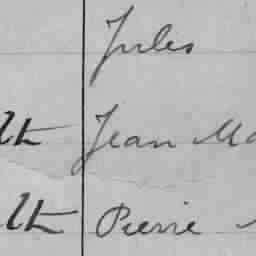 Jules
lt Jean Ma
lt Pierre